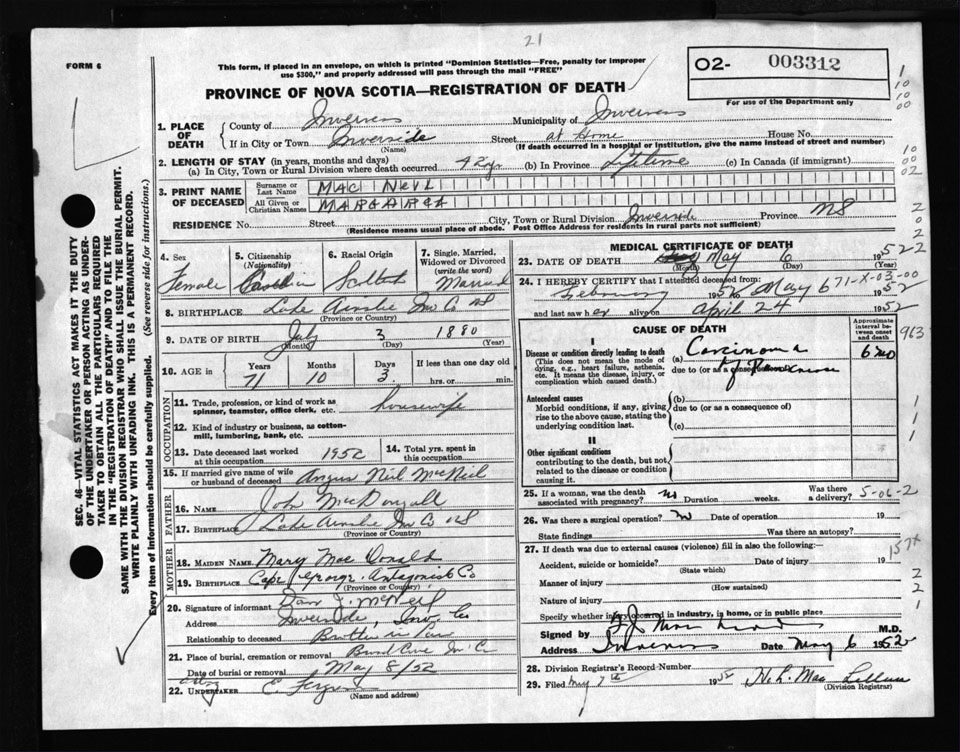 21
FORM 6
This form, if placed in an envelope, on which is printed "Dominion Statistics—Free, penalty for improper
use $300," and properly addressed will pass through the mail "FREE"
PROVINCE OF NOVA SCOTIA—REGISTRATION OF DEATH
O2- 003312
For use of the Department only
1. PLACE OF DEATH
County of Inverness Municipality of Inverness
If in City or Town Inverside Street at Home House No.
(Name) (If death occurred in a hospital or institution, give the name instead of street and number)
2. LENGTH OF STAY (in years, months and days)
(a) In City, Town or Rural Division where death occurred 42 yr (b) In Province Lifetime (c) In Canada (if immigrant)
3. PRINT NAME OF DECEASED
Surname or Last Name MAC NEIL
All Given or Christian Names MARGARET
RESIDENCE No. Street City, Town or Rural Division Inverside Province NS
(Residence means usual place of abode. Post Office Address for residents in rural parts not sufficient)
4. Sex Female
5. Citizenship (Nationality) Canadian
6. Racial Origin Scottish
7. Single, Married, Widowed or Divorced (write the word) Married
8. BIRTHPLACE Lake Ainslie Inv Co NS
(Province or Country)
9. DATE OF BIRTH July 3 1880
(Month) (Day) (Year)
10. AGE in Years 71 Months 10 Days 3 If less than one day old hrs. or min.
OCCUPATION
11. Trade, profession, or kind of work as spinner, teamster, office clerk, etc. housewife
12. Kind of industry or business, as cotton-mill, lumbering, bank, etc.
13. Date deceased last worked at this occupation 1952
14. Total yrs. spent in this occupation
15. If married give name of wife or husband of deceased Angus Neil McNeil
FATHER
16. NAME John MacDougall
17. BIRTHPLACE Lake Ainslie Inv Co NS
(Province or Country)
MOTHER
18. MAIDEN NAME Mary MacDonald
19. BIRTHPLACE Cape George Antagonish Co
(Province or Country)
20. Signature of informant Dan J. McNeil
Address Inverside, Inv. Co.
Relationship to deceased Brother in law
21. Place of burial, cremation or removal Broad Cove In C
Date of burial or removal May 8/52
22. UNDERTAKER
(Name and address)
MEDICAL CERTIFICATE OF DEATH
23. DATE OF DEATH May 6 1952
(Month) (Day) (Year)
24. I HEREBY CERTIFY that I attended deceased from:
February 1952 May 6 1952
671-X-03-00
and last saw her alive on April 24 1952
CAUSE OF DEATH
Approximate interval between onset and death
I
Disease or condition directly leading to death (a) Carcinoma 6 mo
(This does not mean the mode of dying, e.g., heart failure, asthenia, etc. It means the disease, injury, or complication which caused death.)
due to (or as a consequence of)
Antecedent causes (b)
Morbid conditions, if any, giving rise to the above cause, stating the underlying condition last.
due to (or as a consequence of)
(c)
II
Other significant conditions
contributing to the death, but not related to the disease or condition causing it.
25. If a woman, was the death associated with pregnancy? no Duration weeks. Was there a delivery? 5-06-2
26. Was there a surgical operation? no Date of operation 19
State findings Was there an autopsy?
27. If death was due to external causes (violence) fill in also the following:—
Accident, suicide or homicide? Date of injury 19
(State which)
Manner of injury
(How sustained)
Nature of injury
Specify whether injury occurred in industry, in home, or in public place
Signed by M.D.
Address Inverness Date May 6 1952
28. Division Registrar's Record-Number
29. Filed May 7th 195
(Division Registrar)
SEC. 46—VITAL STATISTICS ACT MAKES IT THE DUTY
OF THE UNDERTAKER OR PERSON ACTING AS UNDER-
TAKER TO OBTAIN ALL THE PARTICULARS REQUIRED
IN THE "REGISTRATION OF DEATH" AND TO FILE THE
SAME WITH THE DIVISION REGISTRAR WHO SHALL ISSUE THE BURIAL PERMIT.
WRITE PLAINLY WITH UNFADING INK. THIS IS A PERMANENT RECORD.
Every item of information should be carefully supplied. (See reverse side for instructions.)